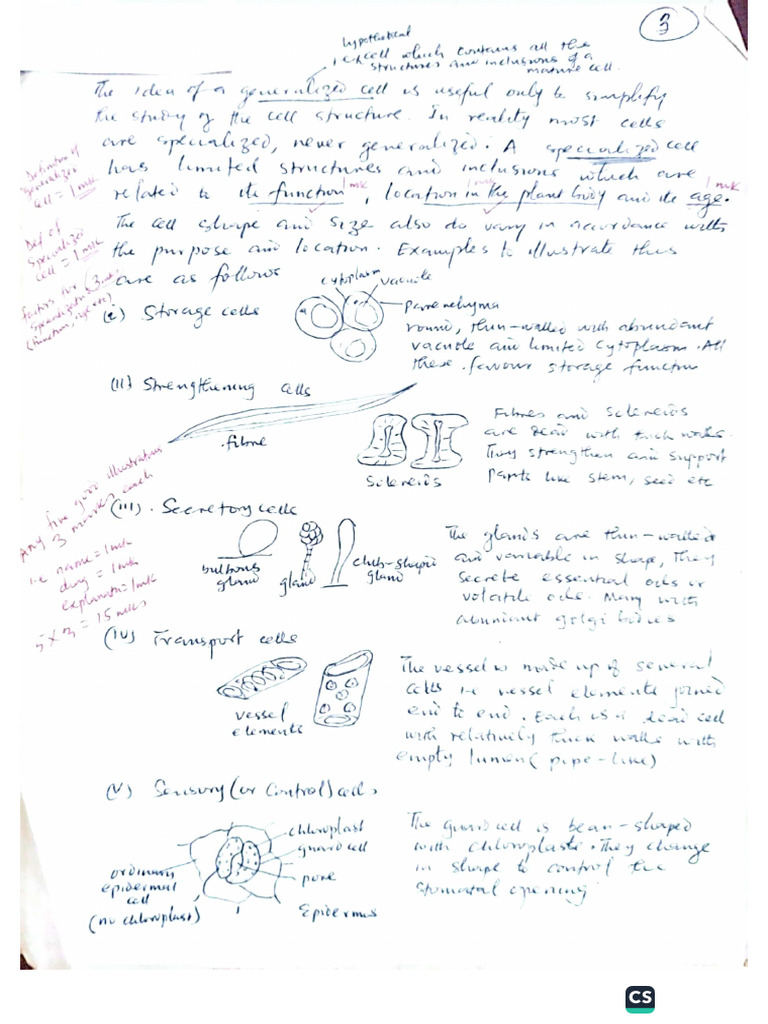 3
hypothetical
cell which contains all the
structures and inclusions of a
mature cell.
The idea of a generalized cell is useful only to simplify
the study of the cell structure. In reality most cells
are specialized, never generalized. A specialized cell
has limited structures and inclusions which are
related to its function, location in the plant body and its age.
1mk
1mk
1mk
The cell shape and size also do vary in accordance with
the purpose and location. Examples to illustrate this
are as follows
Definition of
generalized
cell = 1mk
Def of
specialized
cell = 1mk
factors for
specialization 3mks
(function, age etc)
(i) Storage cells
cytoplasm
vacuole
Parenchyma
round, thin-walled with abundant
vacuole and limited cytoplasm. All
these favour storage function
(ii) Strengthening cells
fibre
Sclereids
Fibres and Sclereids
are dead with thick walls.
They strengthen and support
parts like stem, seed etc
Any five good illustrations
3 marks each
i.e name = 1mk
diag = 1mk
explanation = 1mk
5 x 3 = 15 mks
(iii). Secretory cells
bulbous
gland
gland
club-shaped
gland
The glands are thin-walled
and variable in shape, they
secrete essential oils or
volatile oils. Many with
abundant golgi bodies
(iv) Transport cells
vessel
elements
The vessel is made up of several
cells i.e vessel elements joined
end to end. Each is a dead cell
with relatively thick walls with
empty lumen (pipe-like)
(v) Sensory (or control) cells
chloroplast
guard cell
pore
Epidermis
ordinary
epidermal
cell
(no chloroplast)
The guard cell is bean-shaped
with chloroplasts. They change
in shape to control the
stomatal opening
CS